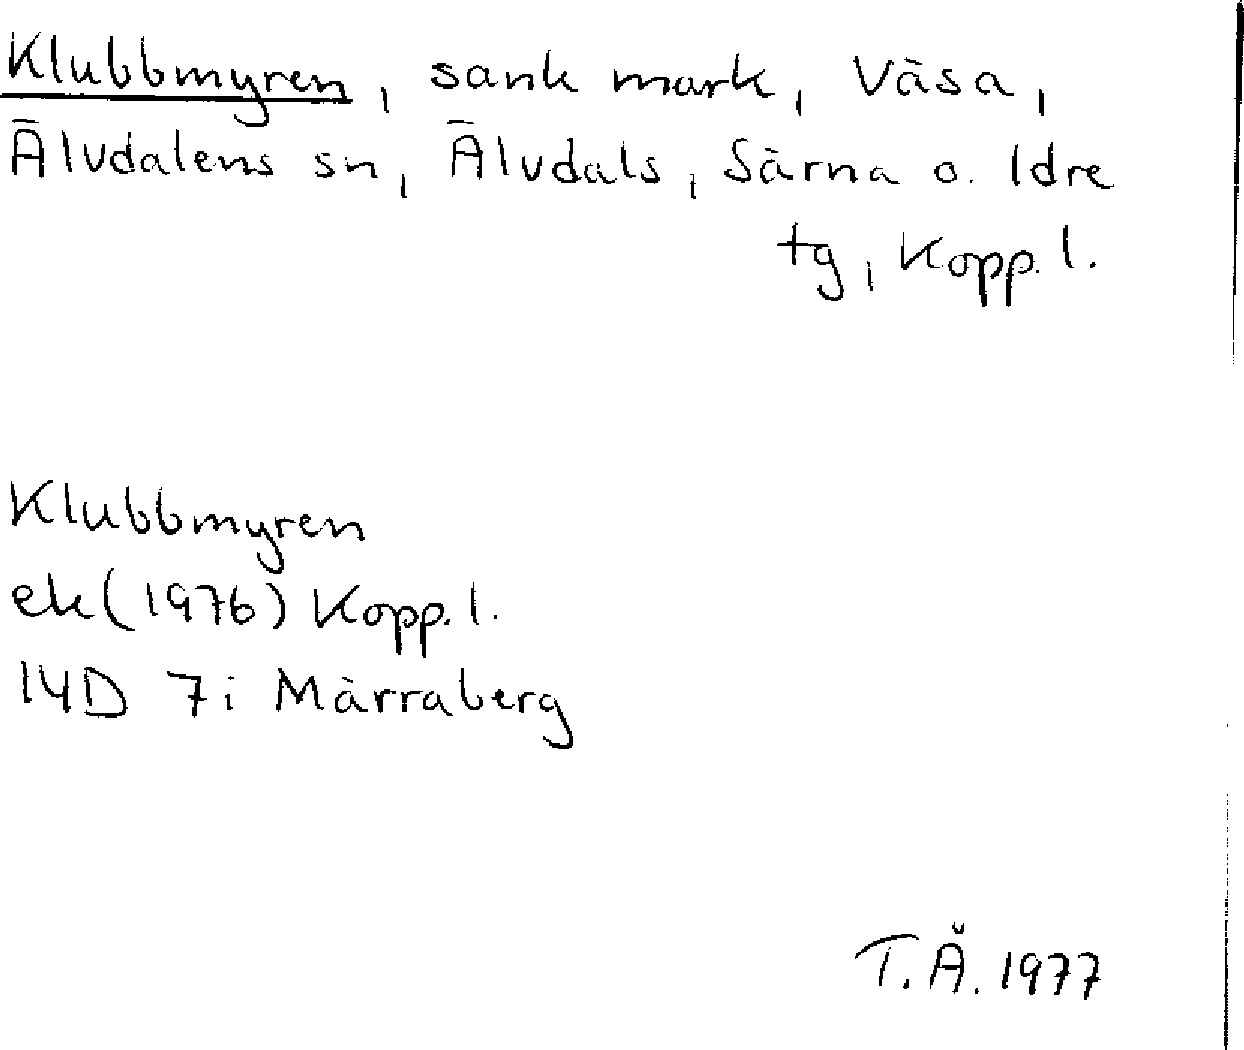 Klubbmyren, sank mark, Väsa,
Älvdalens sn, Älvdals, Särna o. Idre
tg, Kopp. l.
Klubbmyren
ek (1976) Kopp. l.
14D 7i Märraberg
T.Å. 1977